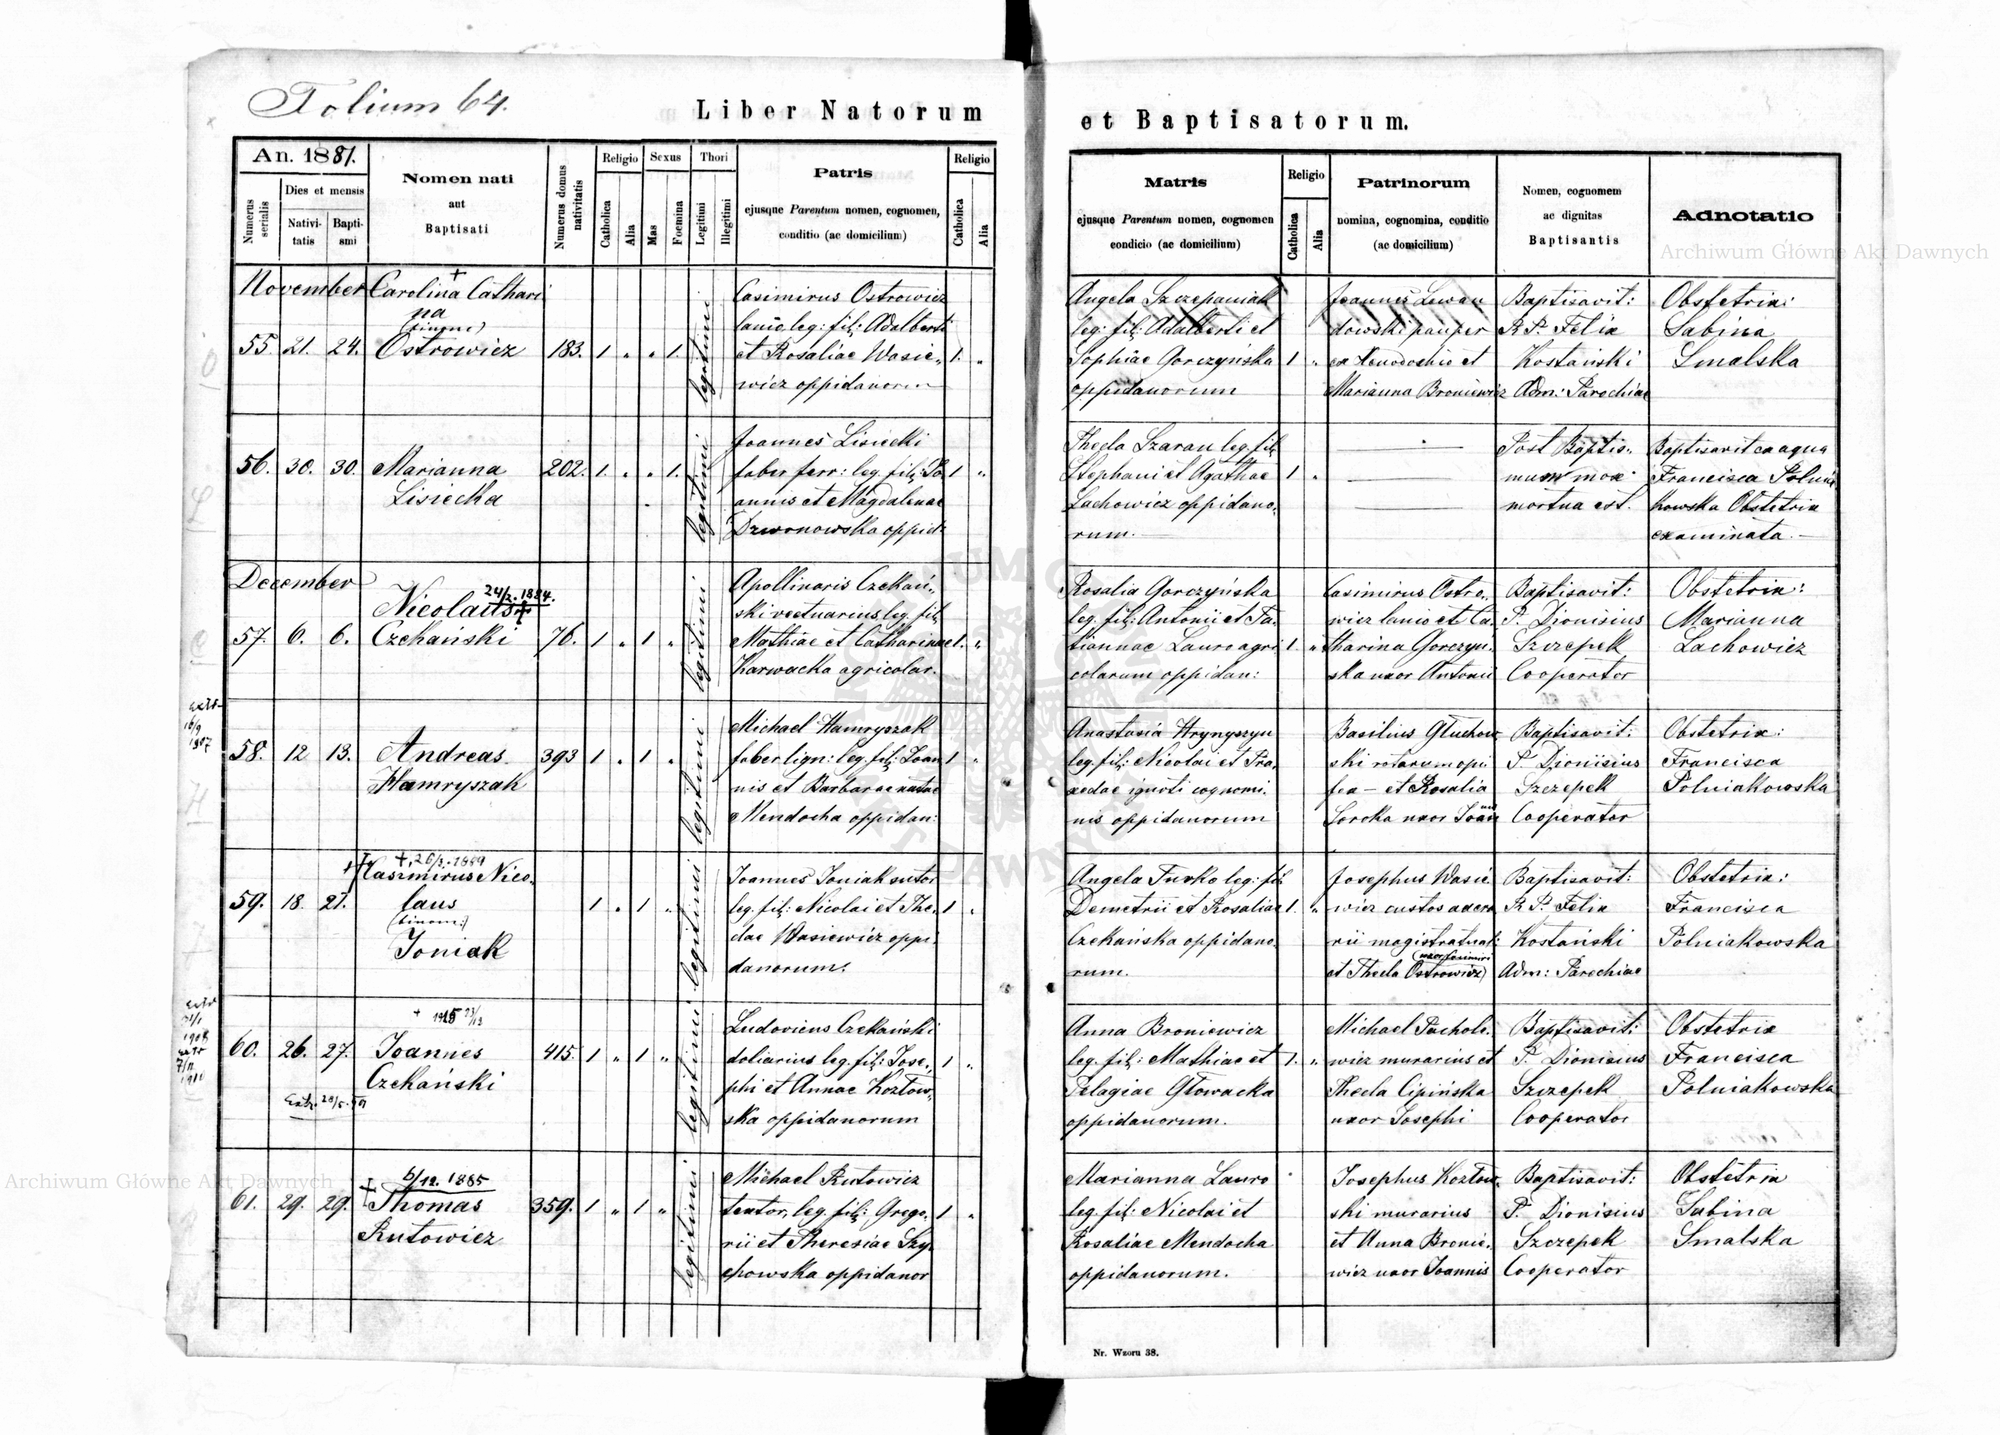 Folium 64.
Liber Natorum
et Baptisatorum.
An. 1881.
Numerus serialis
Dies et mensis
Nativitatis
Baptismi
Nomen nati
aut
Baptisati
Numerus domus nativitatis
Religio
Catholica
Alia
Sexus
Mas
Foemina
Thori
Legitimi
Illegitimi
Patris
ejusque Parentum nomen, cognomen,
conditio (ac domicilium)
Religio
Catholica
Alia
Matris
ejusque Parentum nomen, cognomen
condicio (ac domicilium)
Religio
Catholica
Alia
Patrinorum
nomina, cognomina, conditio
(ac domicilium)
Nomen, cognomem
ac dignitas
Baptisantis
Adnotatio
Archiwum Główne Akt Dawnych
November
55. 21. 24.
Carolina Cathari
na
(binom:)
Ostrowicz
183. 1 „ „ 1.
legitimi
Casimirus Ostrowicz
lanio, leg: fil: Adalberti
et Rosaliae Wasie„
wicz oppidanorum
1. „
Angela Szczepaniak
leg: fil: Adalberti et
Sophiae Gorczyńska
oppidanorum
1 „
Joannes Lewan
dowski pauper
ex Xenodochio et
Marianna Broniewicz
Baptisavit:
R P. Felix
Kostański
Adm: Parochiae
Obstetrix:
Sabina
Smalska
56. 30. 30.
Marianna
Lisiecka
202. 1. „ „ 1.
legitimi
Joannes Lisiecki
faber ferr: leg. fil: Jo
annis et Magdalenae
Dzwonowska oppid:
1 „
Thecla Szaran leg. fil:
Stephani et Agathae
Lachowicz oppidano„
rum.
1 „
Post Baptis„
mum mox
mortua est.
Baptisavit ex aqua
Francisca Polnia
kowska Obstetrix
examinata.
December
57. 6. 6.
24/2. 1884.
Nicolaus
Czekański
76. 1 „ 1 „
legitimi
Apollinaris Czekań„
ski vectuarius leg. fil:
Mathiae et Catharinae
Karwacka agricolar.
1. „
Rosalia Gorczyńska
leg. fil: Antonii et Ta„
tiannae Lauro agri
colarum oppidan:
1. „
Casimirus Ostro„
wicz lanio et Ca„
tharina Gorczyń„
ska uxor Antonii
Baptisavit:
P. Dionisius
Szczepek
Cooperator
Obstetrix:
Marianna
Lachowicz
extr
16/9
1907
58. 12 13.
Andreas
Hamryszak
393 1 „ 1 „
legitimi
Michael Hamryszak
faber lign: leg. fil: Joan
nis et Barbarae natae
Mendocha oppidan:
1 „
Anastasia Hrynyszyn
leg. fil: Nicolai et Pra„
xedae ignoti cognomi„
nis oppidanorum
Basilius Głuchow
ski rotarum opi
fex — et Rosalia
Soroka uxor Joannis
Baptisavit:
P. Dionisius
Szczepek
Cooperator
Obstetrix:
Francisca
Polniakowska
59. 18. 21.
Casimirus Nico„
laus
(binom:)
Joniak
1 „ 1 „
legitimi
Joannes Joniak sutor
leg. fil: Nicolai et The„
clae Wasiewicz oppi„
danorum.
1 „
Angela Furko leg: fil:
Demetrii et Rosaliae
Czekańska oppidano„
rum.
1. „
Josephus Wasie
wicz custos aera
rii magistratual:
et Thecla Ostrowicz
Baptisavit:
R P. Felix
Kostański
Adm: Parochiae
Obstetrix:
Francisca
Polniakowska
extr
1908
60. 26. 27.
Joannes
Czekański
415. 1 „ 1 „
legitimi
Ludovicus Czekański
doliarius leg. fil: Jose„
phi et Annae Kozłow„
ska oppidanorum
1 „
Anna Broniewicz
leg. fil: Mathiae et
Pelagiae Głowacka
oppidanorum.
1. „
Michael Pachole„
wicz murarius et
Thecla Cipińska
uxor Josephi
Baptisavit:
P. Dionisius
Szczepek
Cooperator
Obstetrix
Francisca
Polniakowska
61. 29. 29.
6/12. 1885
Thomas
Rutowicz
359. 1 „ 1 „
legitimi
Michael Rutowicz
textor, leg. fil: Grego„
rii et Theresiae Szy„
chowska oppidanor
1 „
Marianna Lauro
leg. fil: Nicolai et
Rosaliae Mendocha
oppidanorum.
Josephus Kozłow„
ski murarius
et Anna Bronie„
wicz uxor Joannis
Baptisavit:
P. Dionisius
Szczepek
Cooperator
Obstetrix
Sabina
Smalska
Archiwum Główne Akt Dawnych
Nr. Wzoru 38.